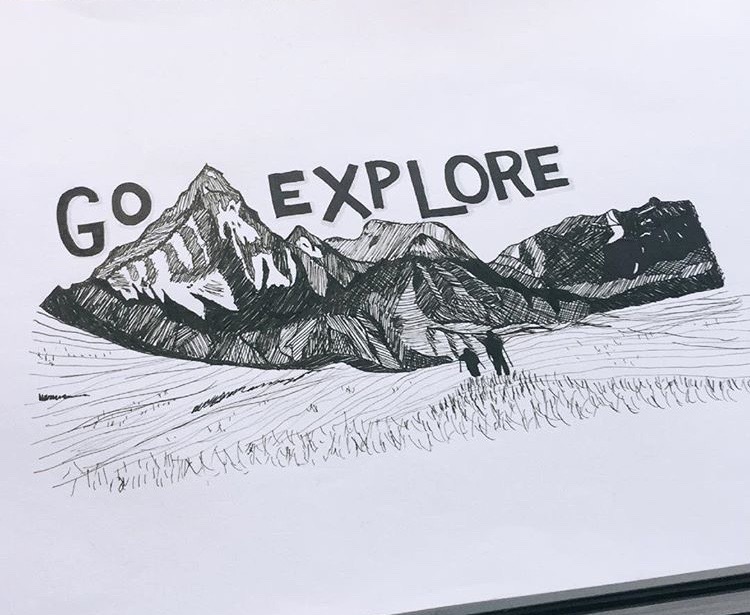 GO EXPLORE